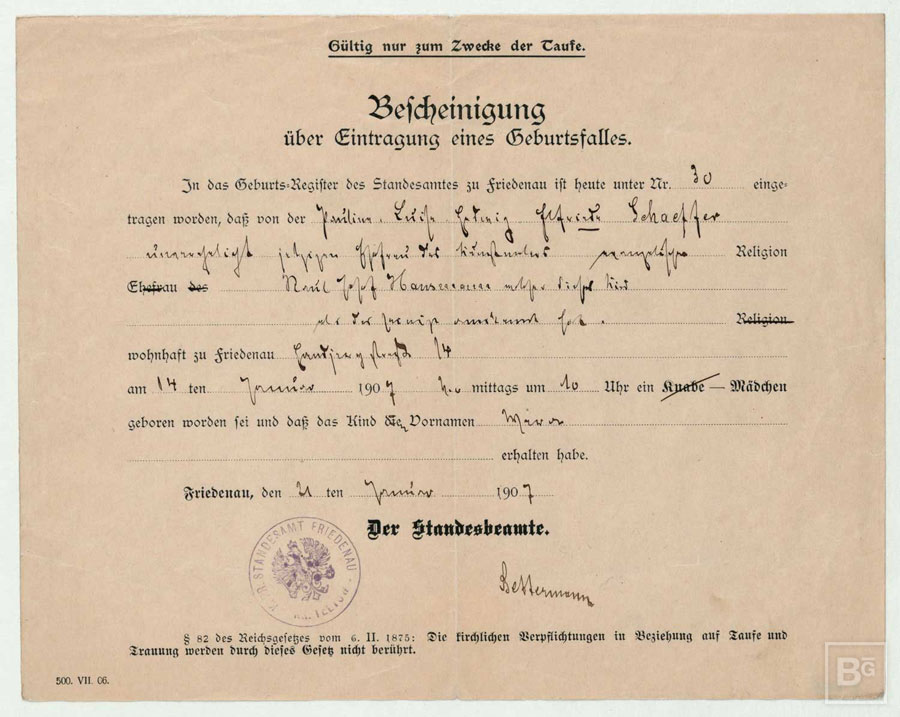 Gültig nur zum Zwecke der Taufe.
Bescheinigung
über Eintragung eines Geburtsfalles.
In das Geburts-Register des Standesamtes zu Friedenau ist heute unter Nr. 30 einge-
tragen worden, daß von der Pauline Luise Hedwig Elfriede Schaeffer
unverehelicht jetzigen Ehefrau des Kunstmalers evangelischer Religion
Ehefrau des Raul Josef Hausmann welcher dieses Kind
als das seinige anerkannt hat. Religion
wohnhaft zu Friedenau Handjerystraße 14
am 14 ten Januar 1907 mittags um 10 Uhr ein Knabe — Mädchen
geboren worden sei und daß das Kind den Vornamen Vera
erhalten habe.
Friedenau, den 21 ten Januar 1907
Der Standesbeamte.
K. P. STANDESAMT FRIEDENAU KR. TELTOW
Bettermann
§ 82 des Reichsgesetzes vom 6. II. 1875: Die kirchlichen Verpflichtungen in Beziehung auf Taufe und
Trauung werden durch dieses Gesetz nicht berührt.
500. VII. 06.
BG